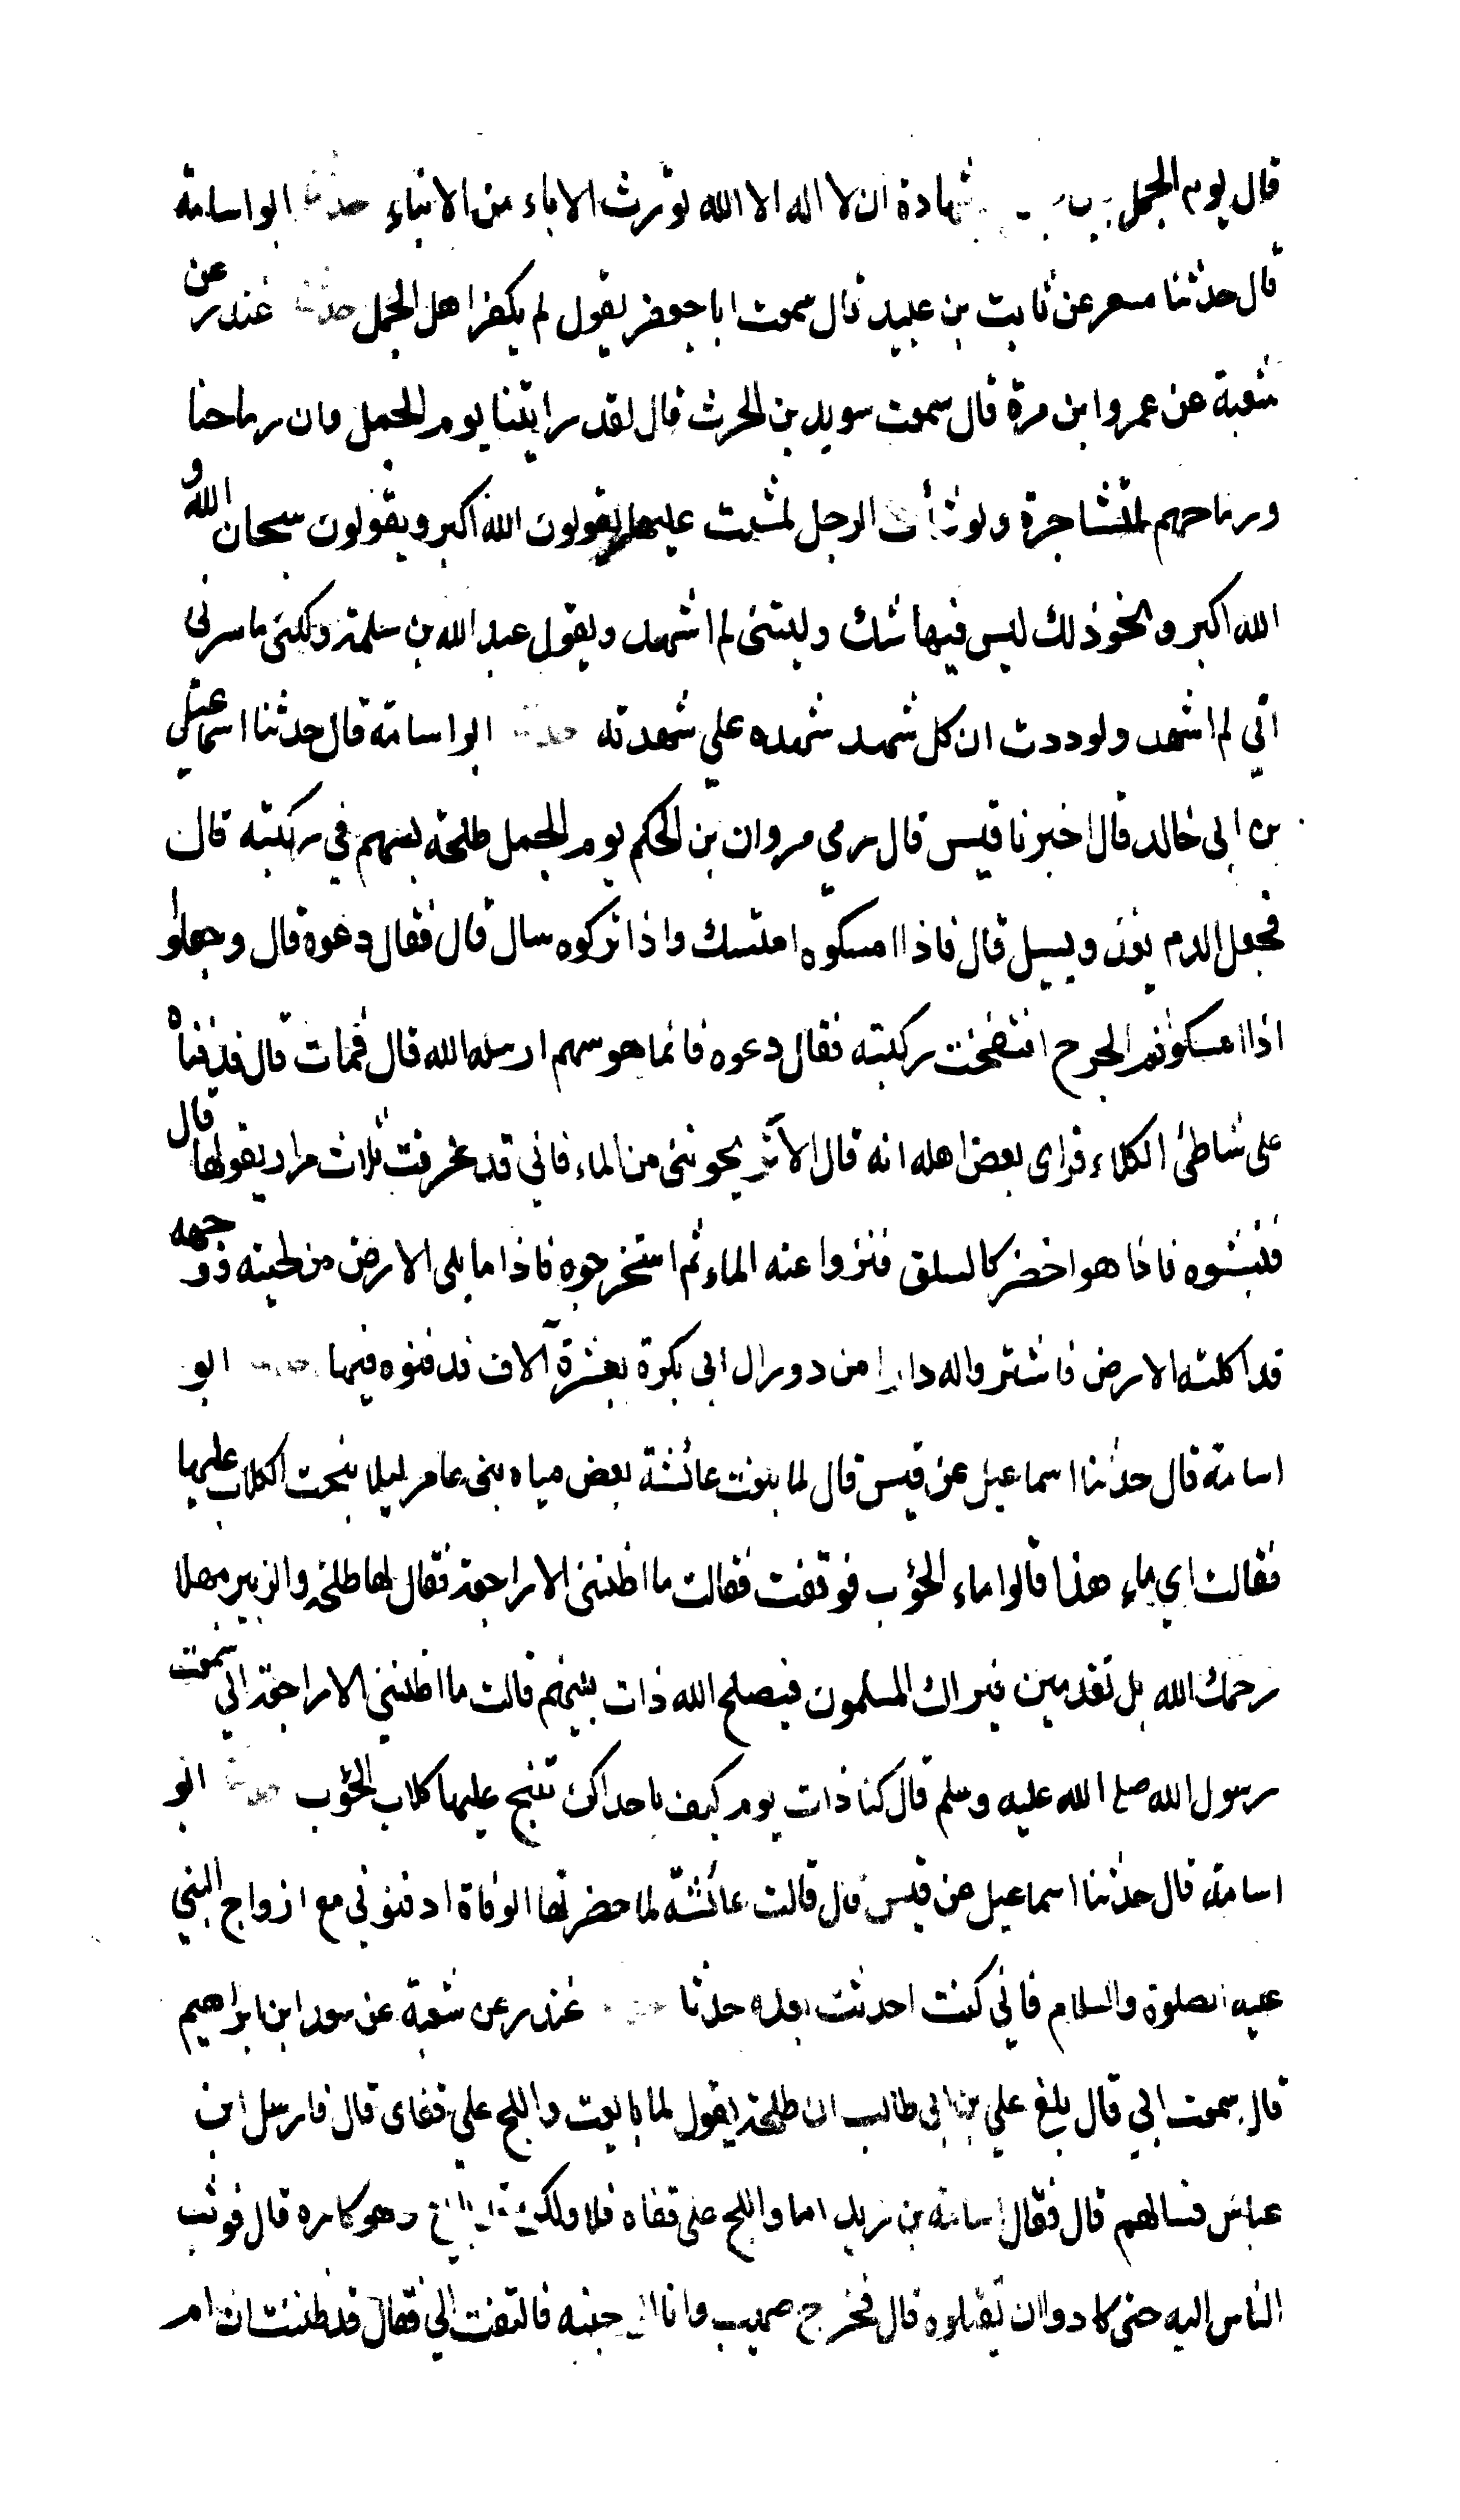 قال يوم الجمل شهادة ان لا اله الا الله نورث الاباء من الابناء حدثنا ابو اسامة
قال حدثنا مسعر عن ثابت بن عبيد قال سمعت ابا جعفر يقول لم يكفر اهل الجمل حدثنا غندر عن
شعبة عن عمرو ابن مرة قال سمعت سويد بن الحرث قال لقد رايتنا يوم الجمل وان رماحنا
ورماحهم لمتشاجرة ولو شأت الرجل لمشت عليها يقولون الله اكبر ويقولون سبحان الله و
الله اكبر ونحو ذلك ليس فيها شك وليتني لم اشهد ويقول عبد الله بن سلمة ولكني ما سرني
اني لم اشهد ولوددت ان كل شهد شهده علي شهدته حدثنا ابو اسامة قال حدثنا اسماعيل
بن ابى خالد قال اخبرنا قيس قال رمي مروان بن الحكم يوم الجمل طلحة بسهم في ركبته قال
فجعل الدم يغذ ويسيل قال فاذا امسكوه امتسك واذا تركوه سال قال فقال دعوه قال وجعلوا
اذا امسكوا فم الجرح انتفخت ركبته فقال دعوه فانما هو سهم ارسله الله قال فمات قال فدفناه
على شاطئ الكلاء فراى بعض اهله انه قال الا تريحونني من الماء فاني قد غرقت ثلاث مرار يقولها قال
فنبشوه فاذا هو اخضر كالسلق فنزوا عنه الماء ثم استخرجوه فاذا ما يلى الارض من لحيته ووجهه
قد اكلته الارض فاشتروا له دارا من دور ال ابى بكرة بعشرة آلاف فدفنوه فيها حدثنا ابو
اسامة قال حدثنا اسماعيل عن قيس قال لما بلغت عائشة بعض مياه بنى عامر ليلا نبحت الكلاب عليها
فقالت اي ماء هذا قالوا ماء الحؤب فوقفت فقالت ما اظنني الا راجعة فقال لها طلحة والزبير مهلا
رحمك الله بل تقدمين فيراك المسلمون فيصلح الله ذات بينهم قالت ما اظنني الا راجعة اني سمعت
رسول الله صلى الله عليه وسلم قال لنا ذات يوم كيف باحداكن تنبح عليها كلاب الحؤب حدثنا ابو
اسامة قال حدثنا اسماعيل عن قيس قال قالت عائشة لما حضرتها الوفاة ادفنوني مع ازواج النبي
عليه الصلوة والسلام فاني كنت احدثت بعده حدثا حدثنا غندر عن شعبة عن سعد ابن ابراهيم
قال سمعت ابي قال بلغ علي بن ابى طالب ان طلحة يقول لما بايعت واللج علي قفاى قال فارسل ابن
عباس فسالهم قال فقال اسامة بن زيد اما واللج على قفاه فلا ولكن قد بايع وهو كاره قال فوثب
الناس اليه حتى كادوا ان يقتلوه قال فخرج صهيب وانا الى جنبه فالتفت الي فقال قد ظننت ان ام